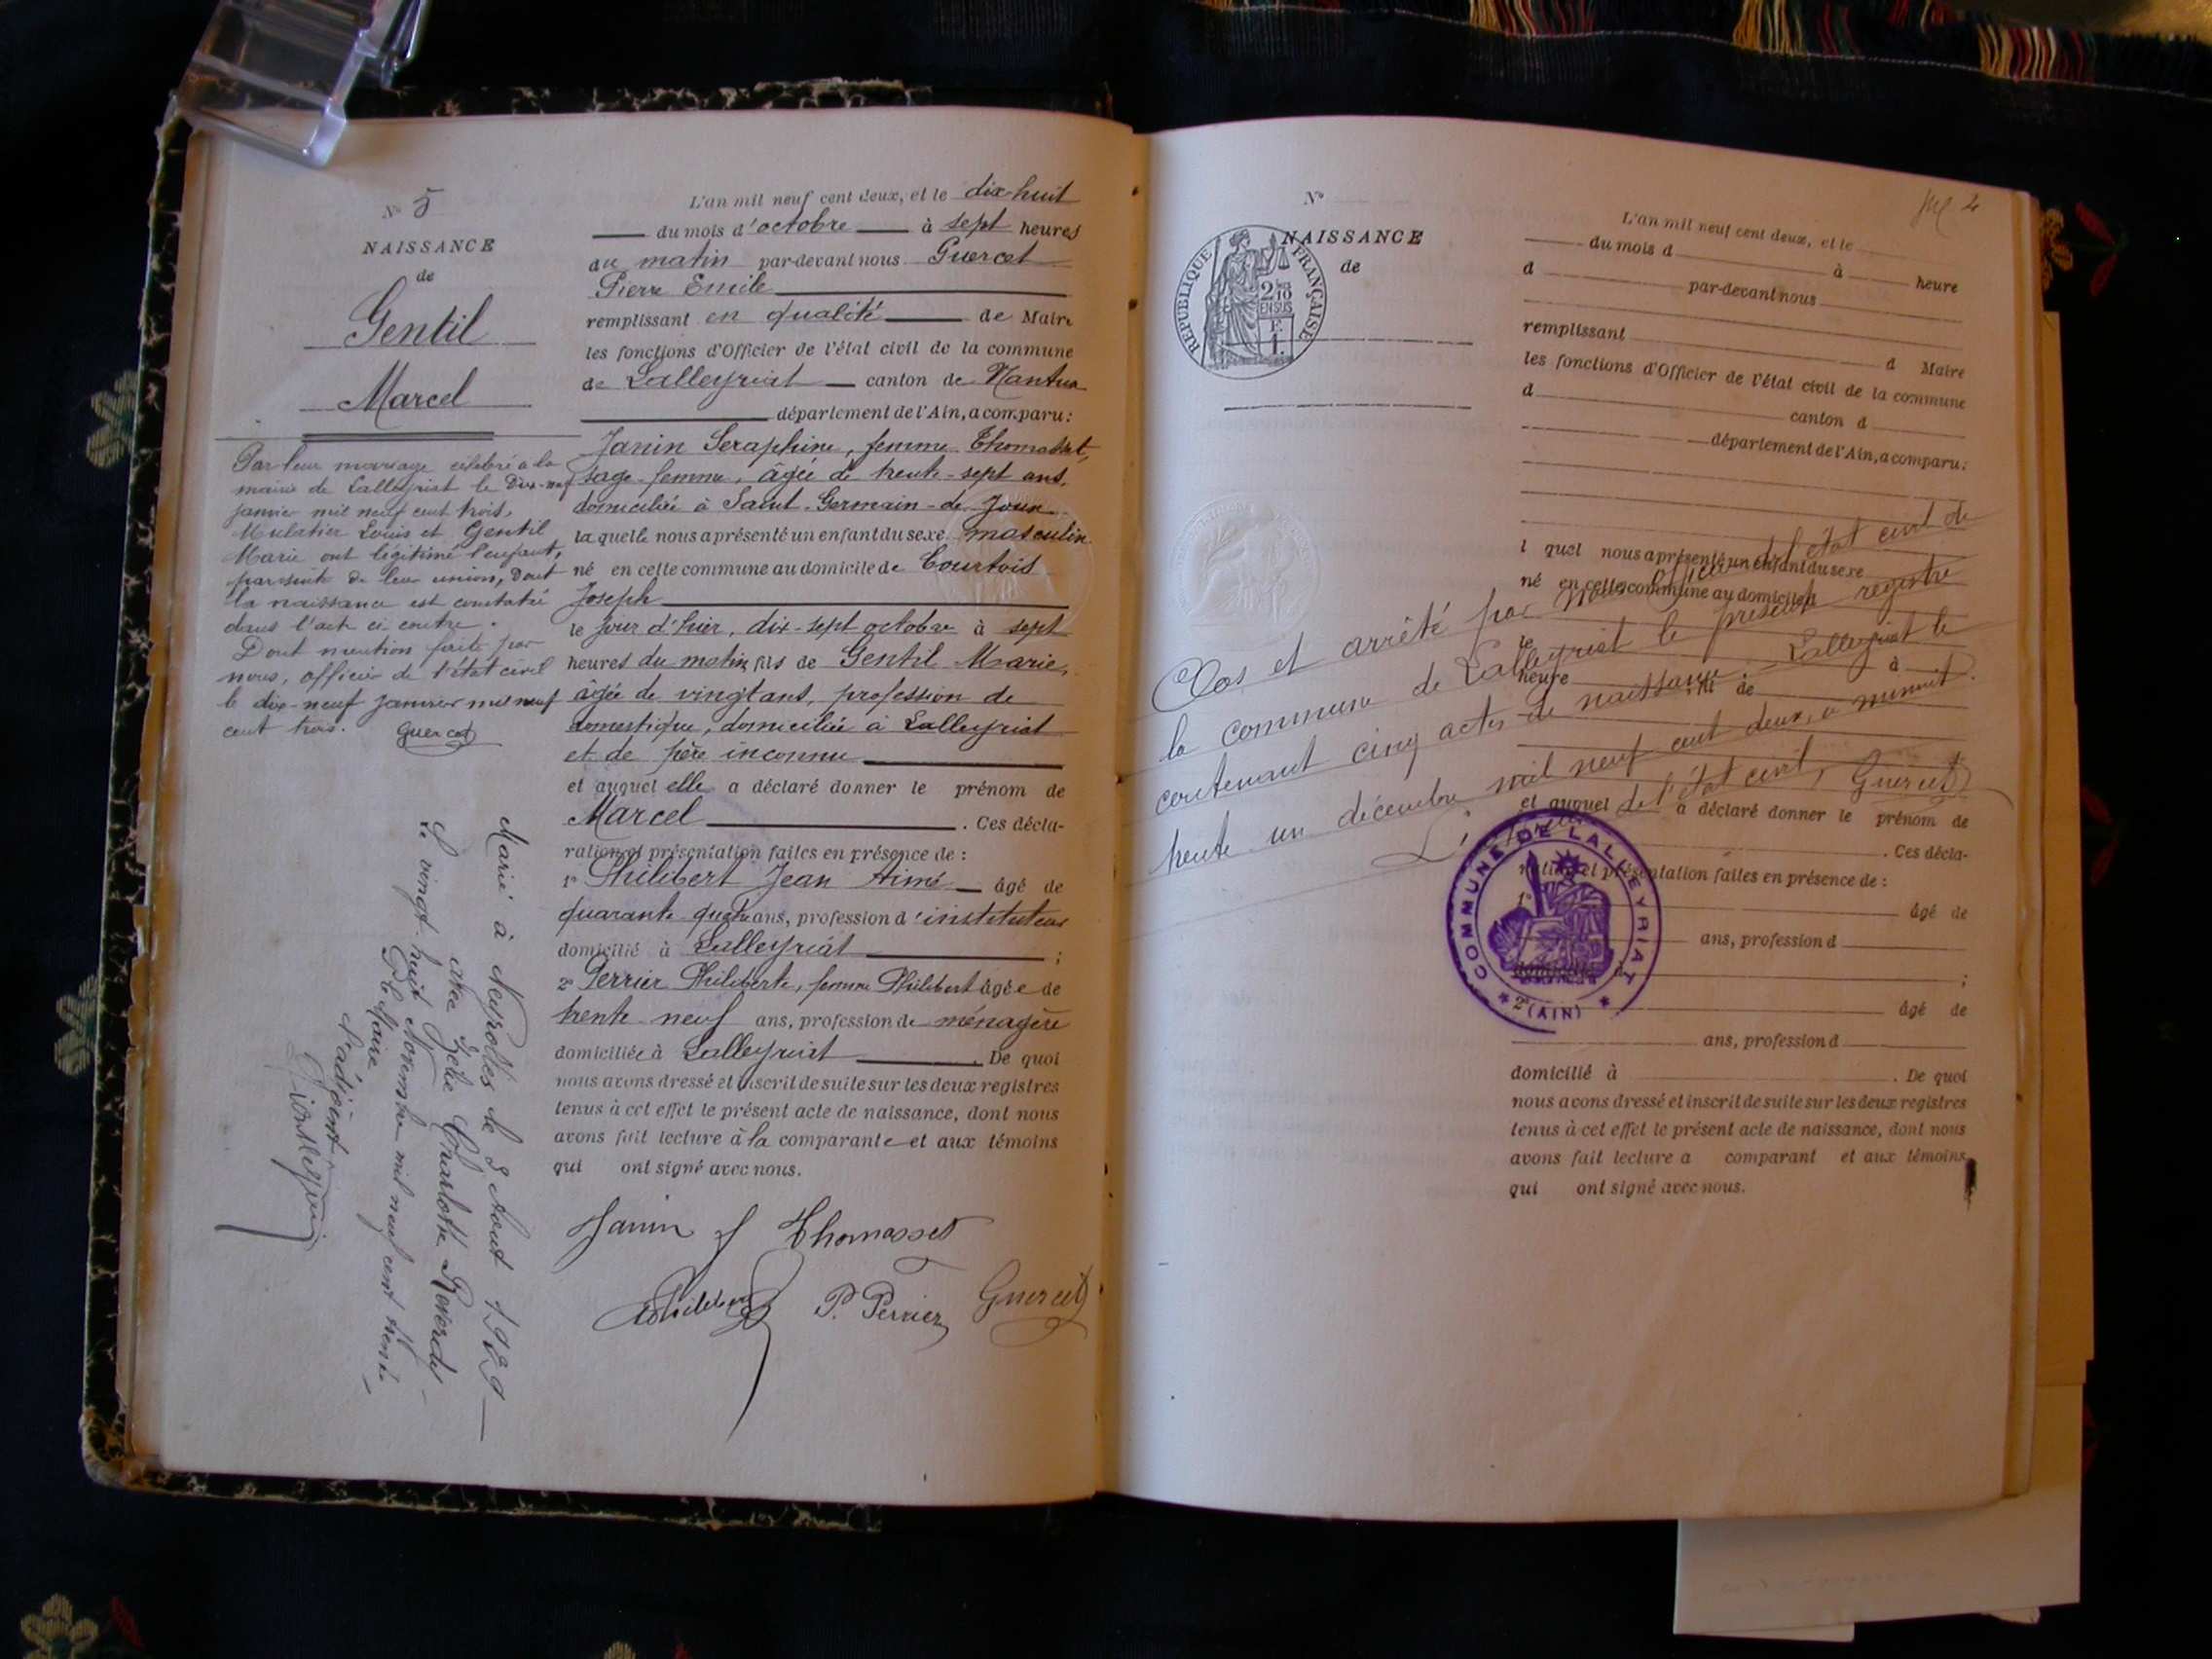 N° 5
NAISSANCE
de
Gentil
Marcel
Par leur mariage célébré à la
mairie de Lalleyriat le Dix-neuf
janvier mil neuf cent trois,
Mulatier Louis et Gentil
Marie ont légitimé l'enfant,
de leur union, Dont
la naissance est constatée
dans l'acte ci contre.
Dont mention faite par
nous, officier de l'état civil
le dix-neuf janvier mil neuf
cent trois. Guercet
Marié à Neyrolles le 3 Août 1929
avec Zélie Charlotte
Le vingt-huit Novembre mil neuf cent trente
P. le Maire
L'adjoint
L'an mil neuf cent deux, et le dix-huit
du mois d'octobre à sept heures
du matin par-devant nous Guercet
Pierre Emile
remplissant en qualité de Maire
les fonctions d'Officier de l'état civil de la commune
de Lalleyriat canton de Nantua
département de l'Ain, a comparu :
Janin Seraphine, femme Thomasset,
sage-femme, âgée de trente-sept ans,
domiciliée à Saint-Germain-de-Joux
la quelle nous a présenté un enfant du sexe masculin
né en cette commune au domicile de Courtois
Joseph
le jour d'hier, dix-sept octobre à sept
heures du matin, fils de Gentil Marie,
âgée de vingt ans, profession de
domestique, domiciliée à Lalleyriat
et de père inconnu
et auquel elle a déclaré donner le prénom de
Marcel . Ces décla-
ration et présentation faites en présence de :
1° Philibert Jean Aimé âgé de
quarante quatre ans, profession d'instituteur
domicilié à Lalleyriat ;
2° Perrier Philiberte, femme Philibert âgée de
trente neuf ans, profession de ménagère
domiciliée à Lalleyriat . De quoi
nous avons dressé et inscrit de suite sur les deux registres
tenus à cet effet le présent acte de naissance, dont nous
avons fait lecture à la comparante et aux témoins
qui ont signé avec nous.
Janin f Thomasset
Philibert P. Perrier Guercet
N°
NAISSANCE
de
REPUBLIQUE FRANÇAISE
2/10
EN SUS
L'an mil neuf cent deux, et le
du mois d à heure
d par-devant nous
remplissant d Maire
les fonctions d'Officier de l'état civil de la commune
d canton d
département de l'Ain, a comparu :
l quel nous a présenté un enfant du sexe
né en cette commune au domicile d
le à
heure fil de
Clos et arrêté par nous Officier de l'état civil de
la commune de Lalleyriat le présent registre
contenant cinq actes de naissance. Lalleyriat le
trente un décembre mil neuf cent deux, à minuit.
L'officier de l'état civil, Guercet
et auquel a déclaré donner le prénom de
. Ces décla-
ration et présentation faites en présence de :
1° âgé de
ans, profession d
domicilié à ;
2° âgé de
ans, profession d
COMMUNE DE LALLEYRIAT
* (AIN) *
domicilié à . De quoi
nous avons dressé et inscrit de suite sur les deux registres
tenus à cet effet le présent acte de naissance, dont nous
avons fait lecture a comparant et aux témoins
qui ont signé avec nous.